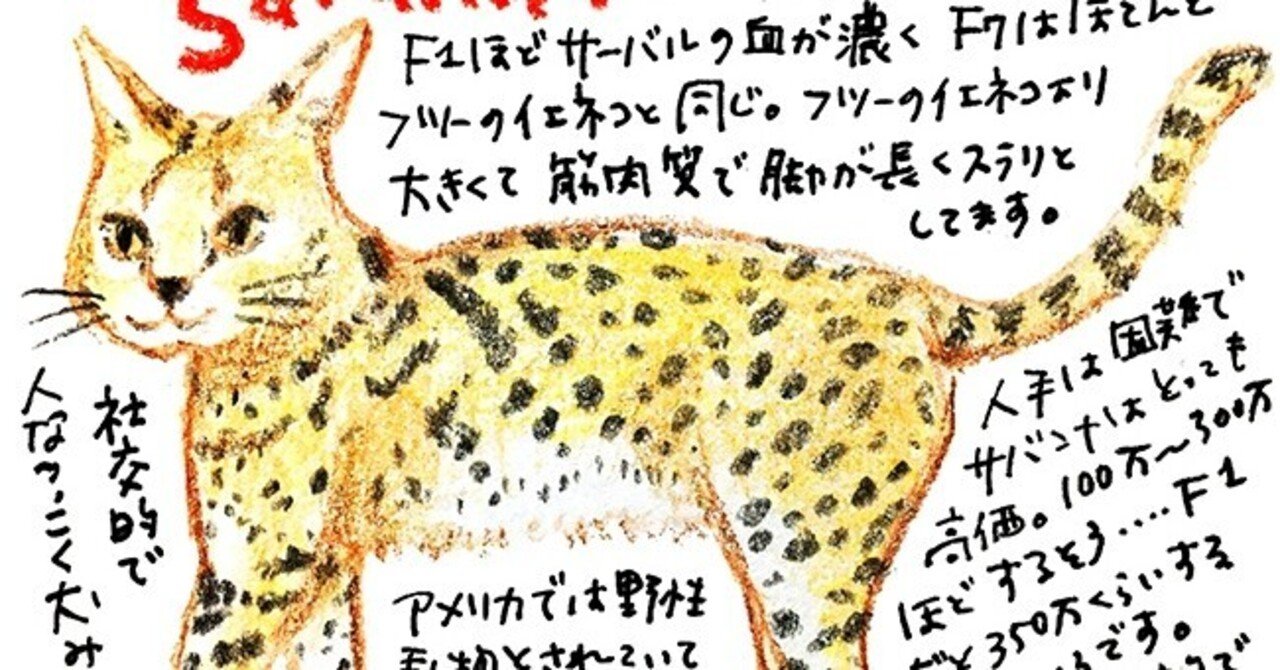 F1ほどサーバルの血が濃く F7はほとんど
フツーのイエネコと同じ。フツーのイエネコより
大きくて筋肉質で脚が長くスラリと
してます。
社交的で
人なつこく犬み
アメリカでは野性
とされていて
入手は困難で
サバンナはとっても
高価。100万〜300万
ほどするそう‥‥F1
だと350万くらいする
です。